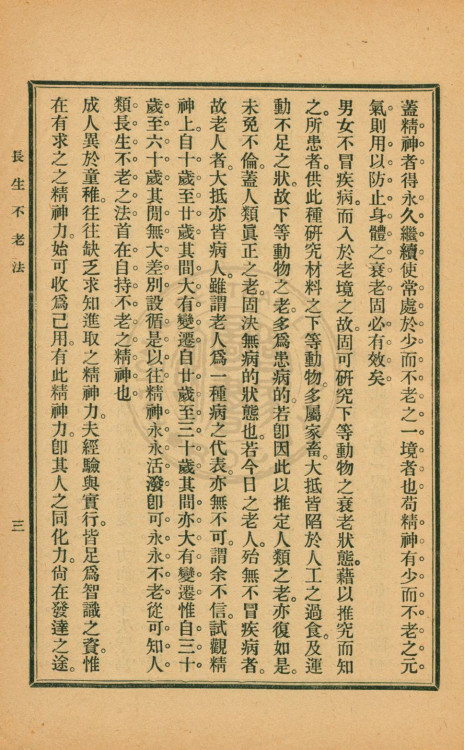 蓋精神者得永久繼續使常處於少而不老之一境者也苟精神有少而不老之元
氣則用以防止身體之衰老固必有效矣
男女不冒疾病而入於老境之故固可研究下等動物之衰老狀態藉以推究而知
之所患者供此種研究材料之下等動物多屬家畜大抵皆陷於人工之過食及運
動不足之狀故下等動物之老多爲患病的若卽因此以推定人類之老亦復如是
未免不倫蓋人類眞正之老固決無病的狀態也若今日之老人殆無不冒疾病者
故老人者大抵亦皆病人雖謂老人爲一種病之代表亦無不可謂余不信試觀精
神上自十歲至廿歲其間大有變遷自廿歲至三十歲其間亦大有變遷惟自三十
歲至六十歲其間無大差別設循是以往精神永永活潑卽可永永不老從可知人
類長生不老之法首在自持不老之精神也
成人異於童稚往往缺乏求知進取之精神力夫經驗與實行皆足爲智識之資惟
在有求之之精神力始可收爲己用有此精神力卽其人之同化力尙在發達之途
長生不老法
三